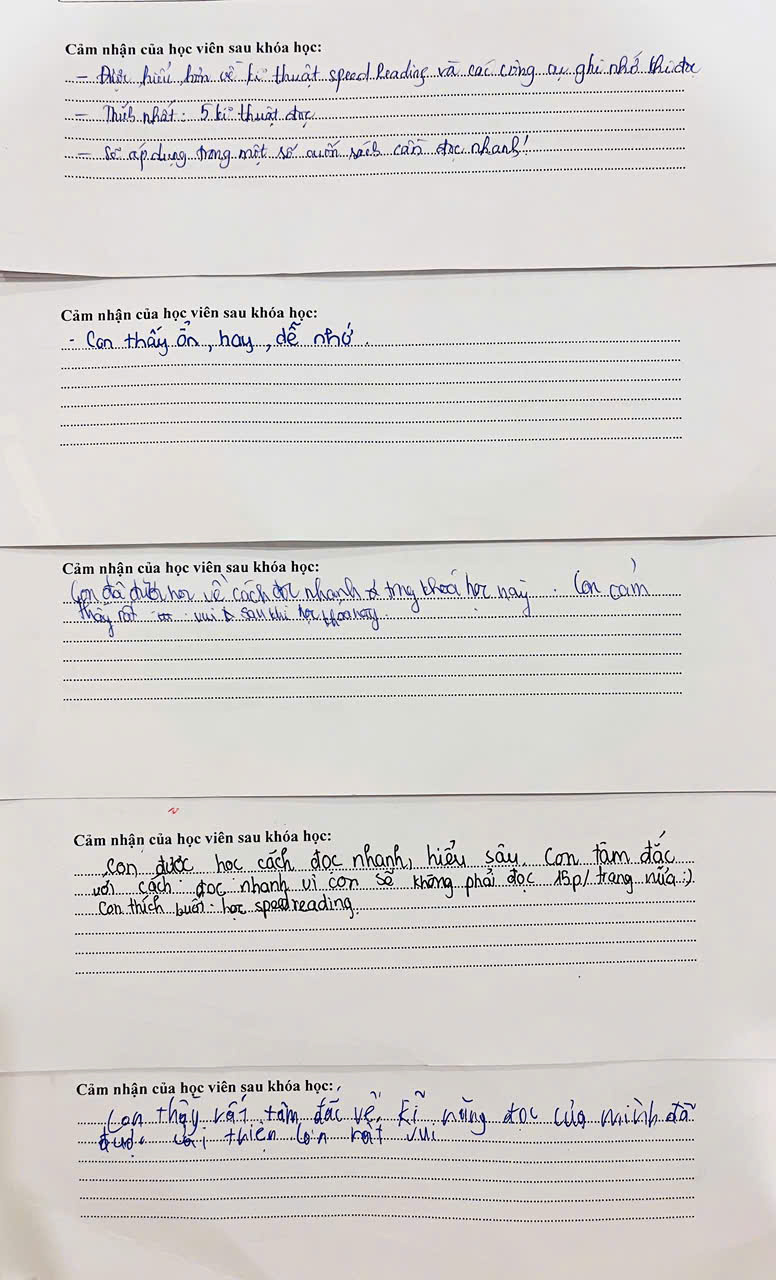 Cảm nhận của học viên sau khóa học:
- Được hiểu hơn về kĩ thuật speed Reading và các công cụ ghi nhớ khi đọc
- Thích nhất: 5 kĩ thuật đọc
- Sẽ áp dụng trong một số cuốn sách cần đọc nhanh!
Cảm nhận của học viên sau khóa học:
- Con thấy ổn, hay, dễ nhớ.
Cảm nhận của học viên sau khóa học:
Con đã được học về cách đọc nhanh trong khoá học này. Con cảm
thấy rất vui sau khi học khoá này.
Cảm nhận của học viên sau khóa học:
Con được học cách đọc nhanh, hiểu sâu. Con tâm đắc
với cách đọc nhanh vì con sẽ không phải đọc 15p/trang nữa :)
Con thích buổi học speedreading.
Cảm nhận của học viên sau khóa học:
Con thấy rất tâm đắc về kĩ năng đọc của mình đã
được cải thiện Con rất vui